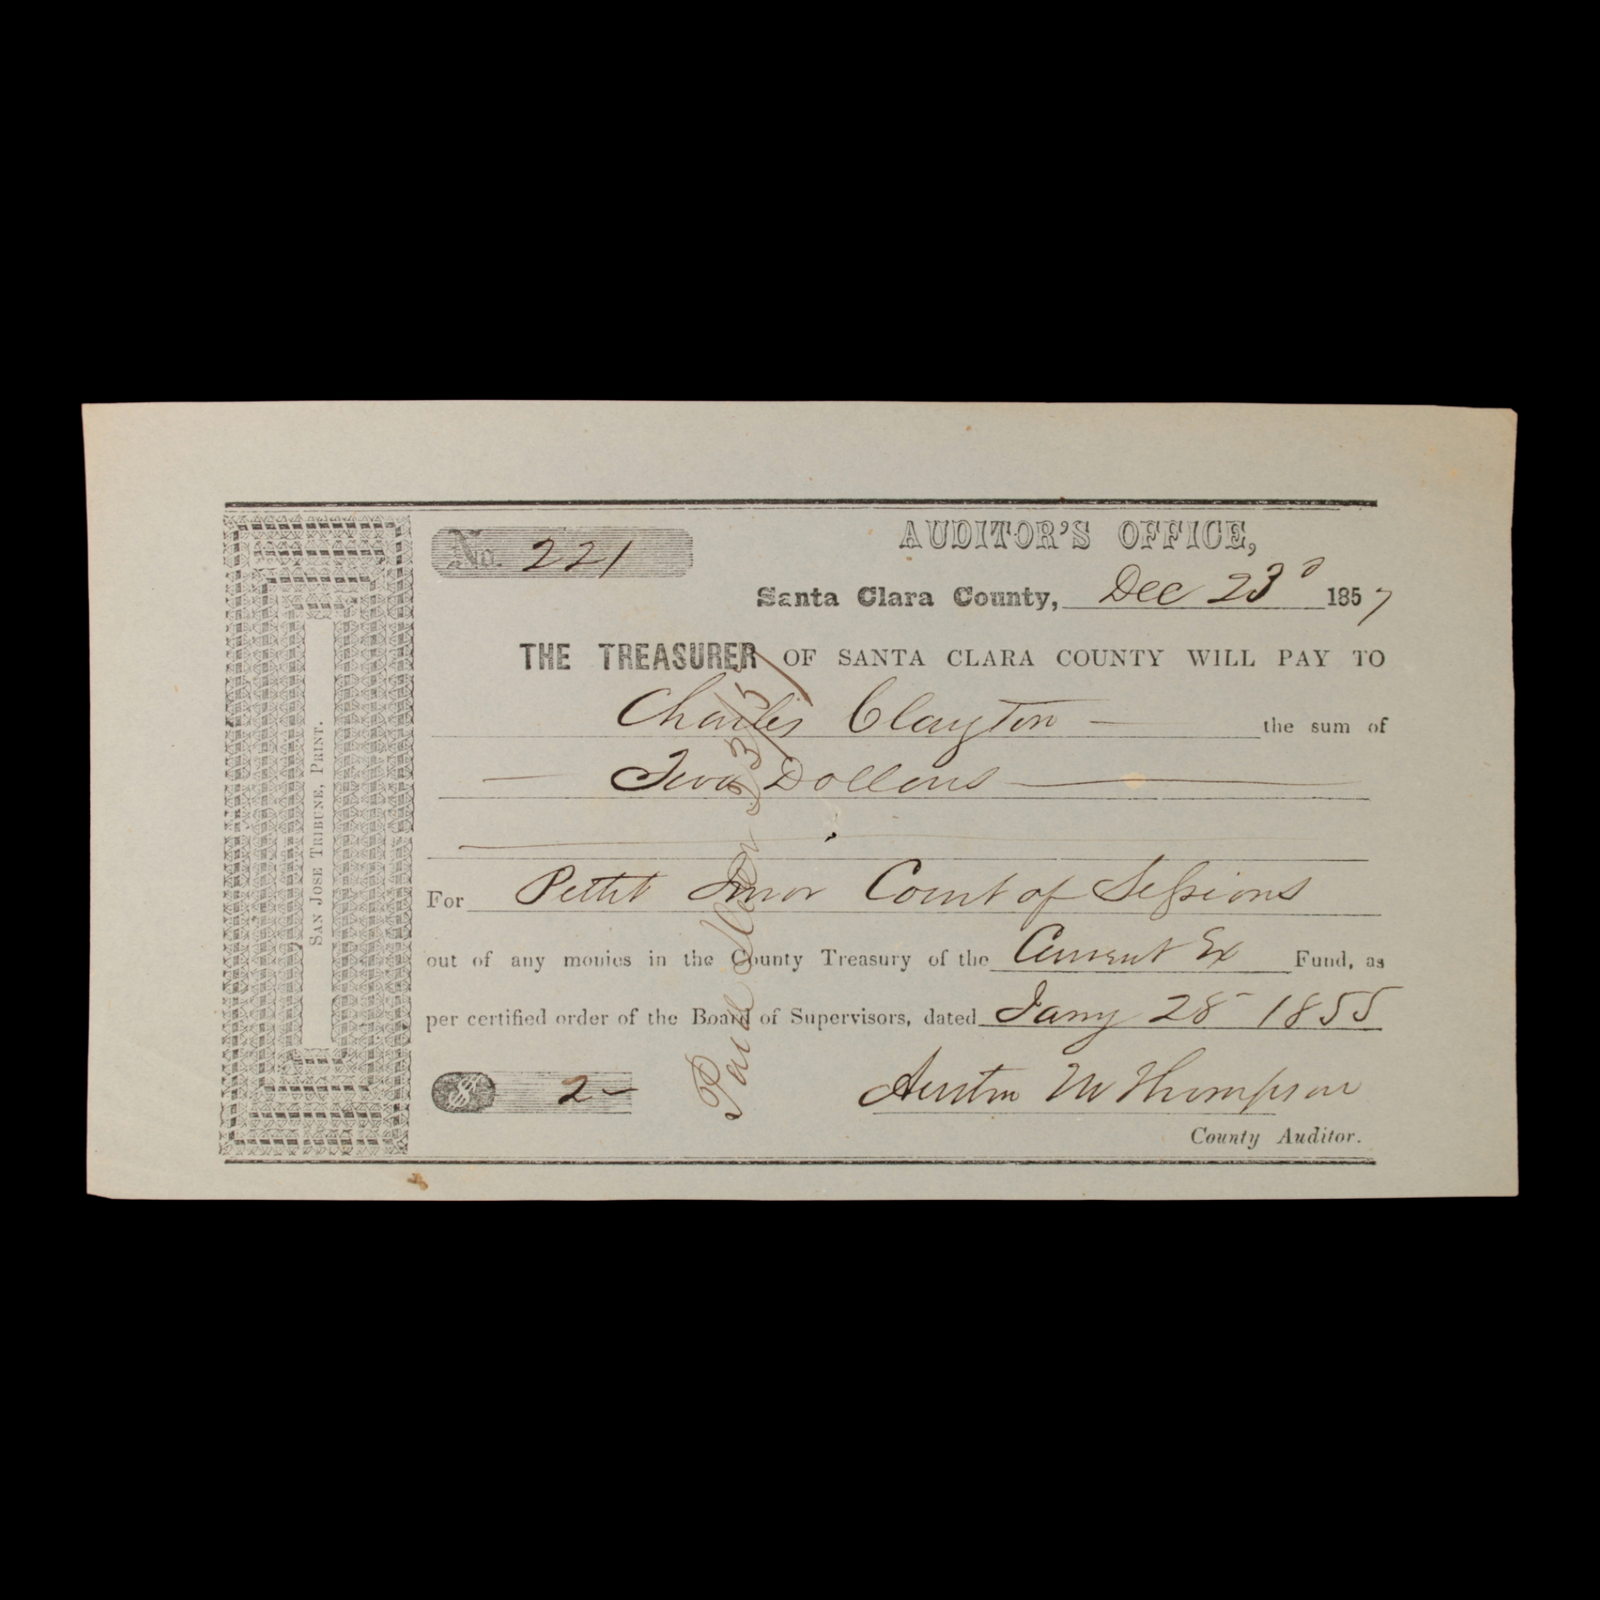 No. 221
AUDITOR'S OFFICE,
Santa Clara County, Dec 23d 1857
THE TREASURER OF SANTA CLARA COUNTY WILL PAY TO
Charles Clayton the sum of
Two Dollars
For Pettit Juror Court of Sessions
out of any monies in the County Treasury of the Current Ex Fund, as
per certified order of the Board of Supervisors, dated Jany 28 1855
$ 2-
Austin M Thompson
County Auditor.
SAN JOSE TRIBUNE, PRINT.
Paid